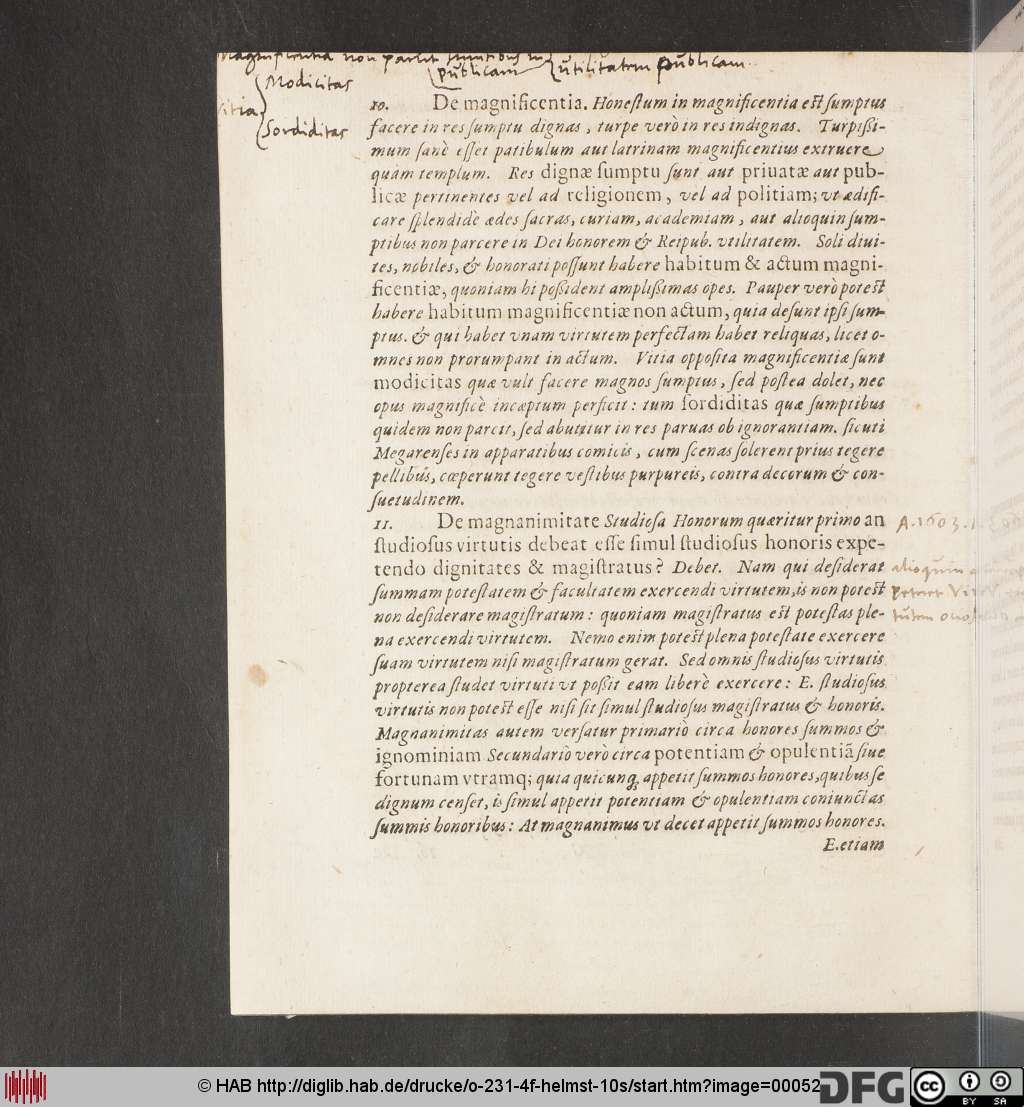 Magnificentia non parcit sumtibus in
publicam utilitatem publicam.
Modicitas
vitia
Sordiditas
10. De magnificentia. Honeſtum in magnificentia eſt ſumptus
facere in res ſumptu dignas, turpe verò in res indignas. Turpißi-
mum ſanè eſſet patibulum aut latrinam magnificentius extruere
quàm templum. Res dignæ ſumptu ſunt aut priuatæ aut pub-
licæ pertinentes vel ad religionem, vel ad politiam; vt ædifi-
care ſplendidè ædes ſacras, curiam, academiam, aut alioquin ſum-
ptibus non parcere in Dei honorem & Reipub. vtilitatem. Soli diui-
tes, nobiles, & honorati poſſunt habere habitum & actum magni-
ficentiæ, quoniam hi poßident amplißimas opes. Pauper verò poteſt
habere habitum magnificentiæ non actum, quia deſunt ipſi ſum-
ptus. & qui habet vnam virtutem perfectam habet reliquas, licet o-
mnes non prorumpant in actum. Vitia oppoſita magnificentiæ ſunt
modicitas quæ vult facere magnos ſumptus, ſed poſtea dolet, nec
opus magnificè incæptum perficit: tum ſordiditas quæ ſumptibus
quidem non parcit, ſed abutitur in res paruas ob ignorantiam. ſicuti
Megarenſes in apparatibus comicis, cum ſcenas ſolerent prius tegere
pellibus, cœperunt tegere veſtibus purpureis, contra decorum & con-
ſuetudinem.
11. De magnanimitate Studioſa Honorum quæritur primo an
ſtudioſus virtutis debeat eſſe ſimul ſtudioſus honoris expe-
tendo dignitates & magiſtratus? Debet. Nam qui deſiderat
ſummam poteſtatem & facultatem exercendi virtutem, is non poteſt
non deſiderare magiſtratum: quoniam magiſtratus eſt poteſtas ple-
na exercendi virtutem. Nemo enim poteſt plena poteſtate exercere
ſuam virtutem niſi magiſtratum gerat. Sed omnis ſtudioſus virtutis
propterea ſtudet virtuti vt poßit eam liberè exercere: E. ſtudioſus
virtutis non poteſt eſſe niſi ſit ſimul ſtudioſus magiſtratus & honoris.
Magnanimitas autem verſatur primariò circa honores ſummos &
ignominiam Secundariò verò circa potentiam & opulentiã ſiue
fortunam vtramq; quia quicunq; appetit ſummos honores, quibus ſe
dignum cenſet, is ſimul appetit potentiam & opulentiam coniunctas
ſummis honoribus: At magnanimus vt decet appetit ſummos honores.
E. etiam
A. 1603.
alioquin
peteret
tutem
© HAB http://diglib.hab.de/drucke/o-231-4f-helmst-10s/start.htm?image=00052
DFG
cc BY SA